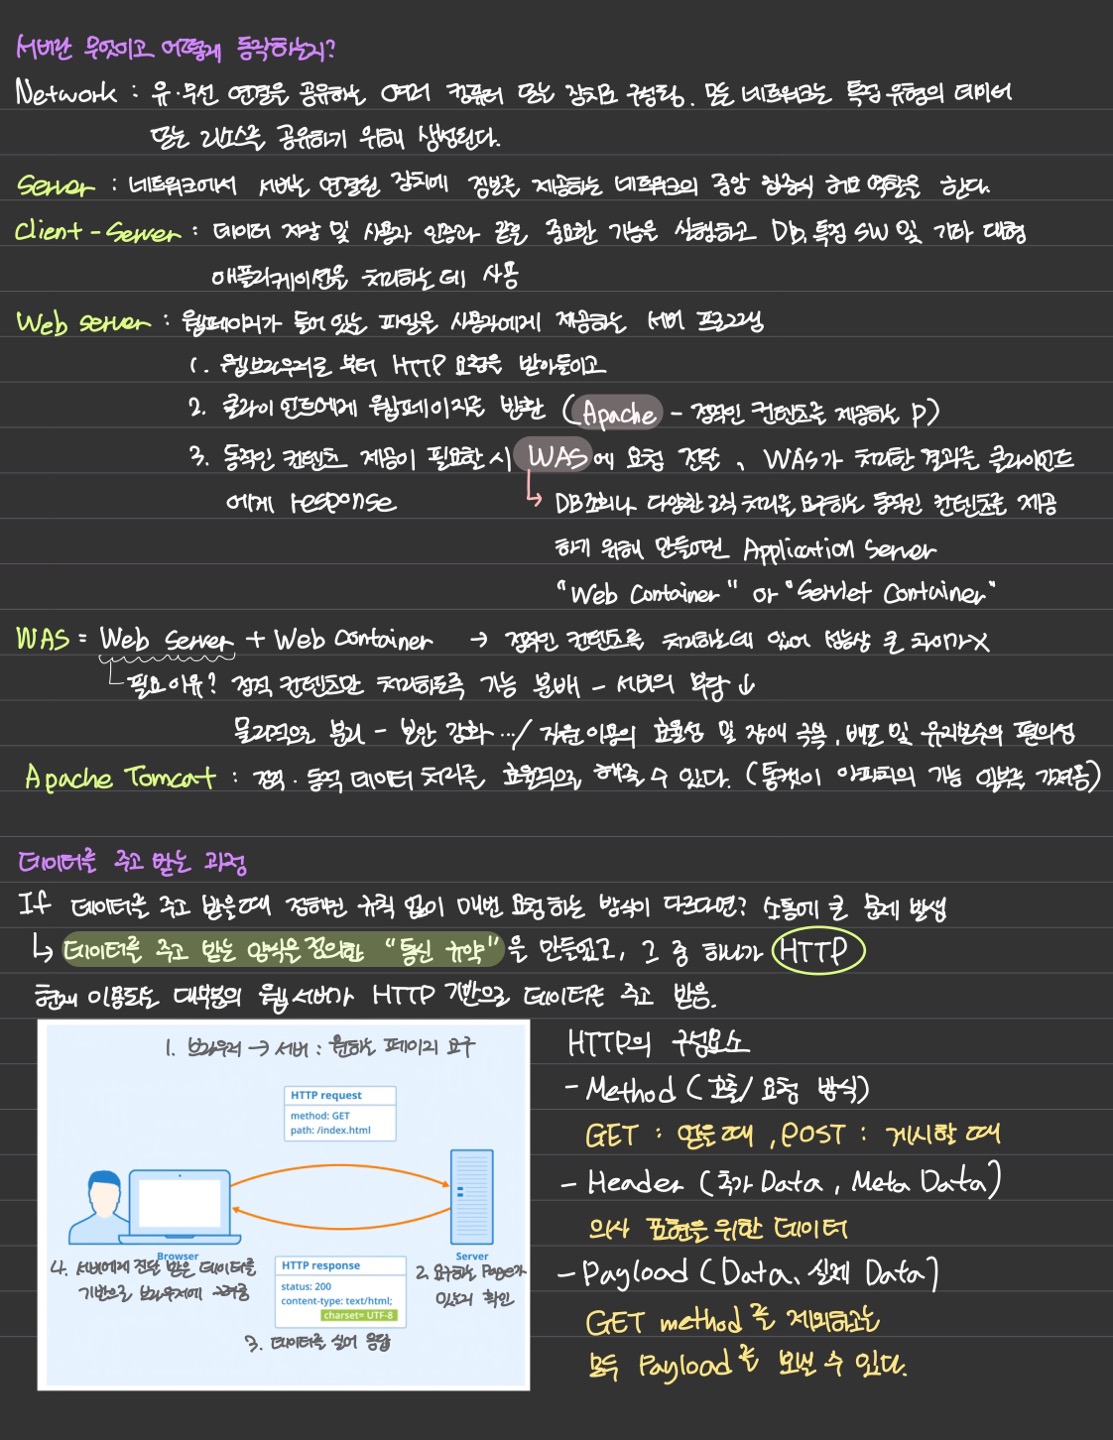 서버란 무엇이고 어떻게 동작하는지?
Network : 유·무선 연결을 공유하는 여러 컴퓨터 또는 장치로 구성됨. 모든 네트워크는 특정 유형의 데이터
또는 리소스를 공유하기 위해 생성된다.
Server : 네트워크에서 서버는 연결된 장치에 정보를 제공하는 네트워크의 중앙 집중식 허브 역할을 한다.
Client - Server : 데이터 저장 및 사용자 인증과 같은 중요한 기능을 실행하고 DB, 특정 SW 및 기타 대형
애플리케이션을 처리하는 데 사용
Web server : 웹페이지가 들어 있는 파일을 사용자에게 제공하는 서버 프로그램
1. 웹브라우저로 부터 HTTP 요청을 받아들이고
2. 클라이언트에게 웹페이지를 반환 (Apache - 정적인 컨텐츠를 제공하는 P)
3. 동적인 컨텐츠 제공이 필요할 시 WAS에 요청 전달, WAS가 처리한 결과를 클라이언트
에게 response
↳ DB조회나 다양한 로직 처리를 요구하는 동적인 컨텐츠를 제공
하기 위해 만들어진 Application Server
"Web Container" or "Servlet Container"
WAS = Web Server + Web Container → 정적인 컨텐츠를 처리하는데 있어 성능상 큰 차이가 X
필요이유? 정적 컨텐츠만 처리하도록 기능 분배 - 서버의 부담↓
물리적으로 분리 - 보안 강화 .../ 자원 이용의 효율성 및 장애 극복, 배포 및 유지보수의 편의성
Apache Tomcat : 정적·동적 데이터 처리를 효율적으로 해줄 수 있다. (톰캣이 아파치의 기능 일부를 가져옴)
데이터를 주고 받는 과정
If 데이터를 주고 받을때 정해진 규칙 없이 매번 요청하는 방식이 다르다면? 소통에 큰 문제 발생
↳ 데이터를 주고 받는 양식을 정의한 "통신 규약"을 만들었고, 그 중 하나가 HTTP
현재 이용되는 대부분의 웹 서버가 HTTP 기반으로 데이터를 주고 받음.
1. 브라우저 → 서버 : 원하는 페이지 요구
HTTP request
method: GET
path: /index.html
Browser
Server
4. 서버에게 전달 받은 데이터를
기반으로 브라우저에 그려줌
HTTP response
status: 200
content-type: text/html;
charset= UTF-8
2. 요구하는 Page가
있는지 확인
3. 데이터를 실어 응답
HTTP의 구성요소
- Method (호출/요청 방식)
GET : 얻을 때, POST : 게시할 때
- Header (추가 Data, Meta Data)
의사 표현을 위한 데이터
- Payload (Data, 실제 Data)
GET method 를 제외하고는
모두 Payload를 보낼 수 있다.